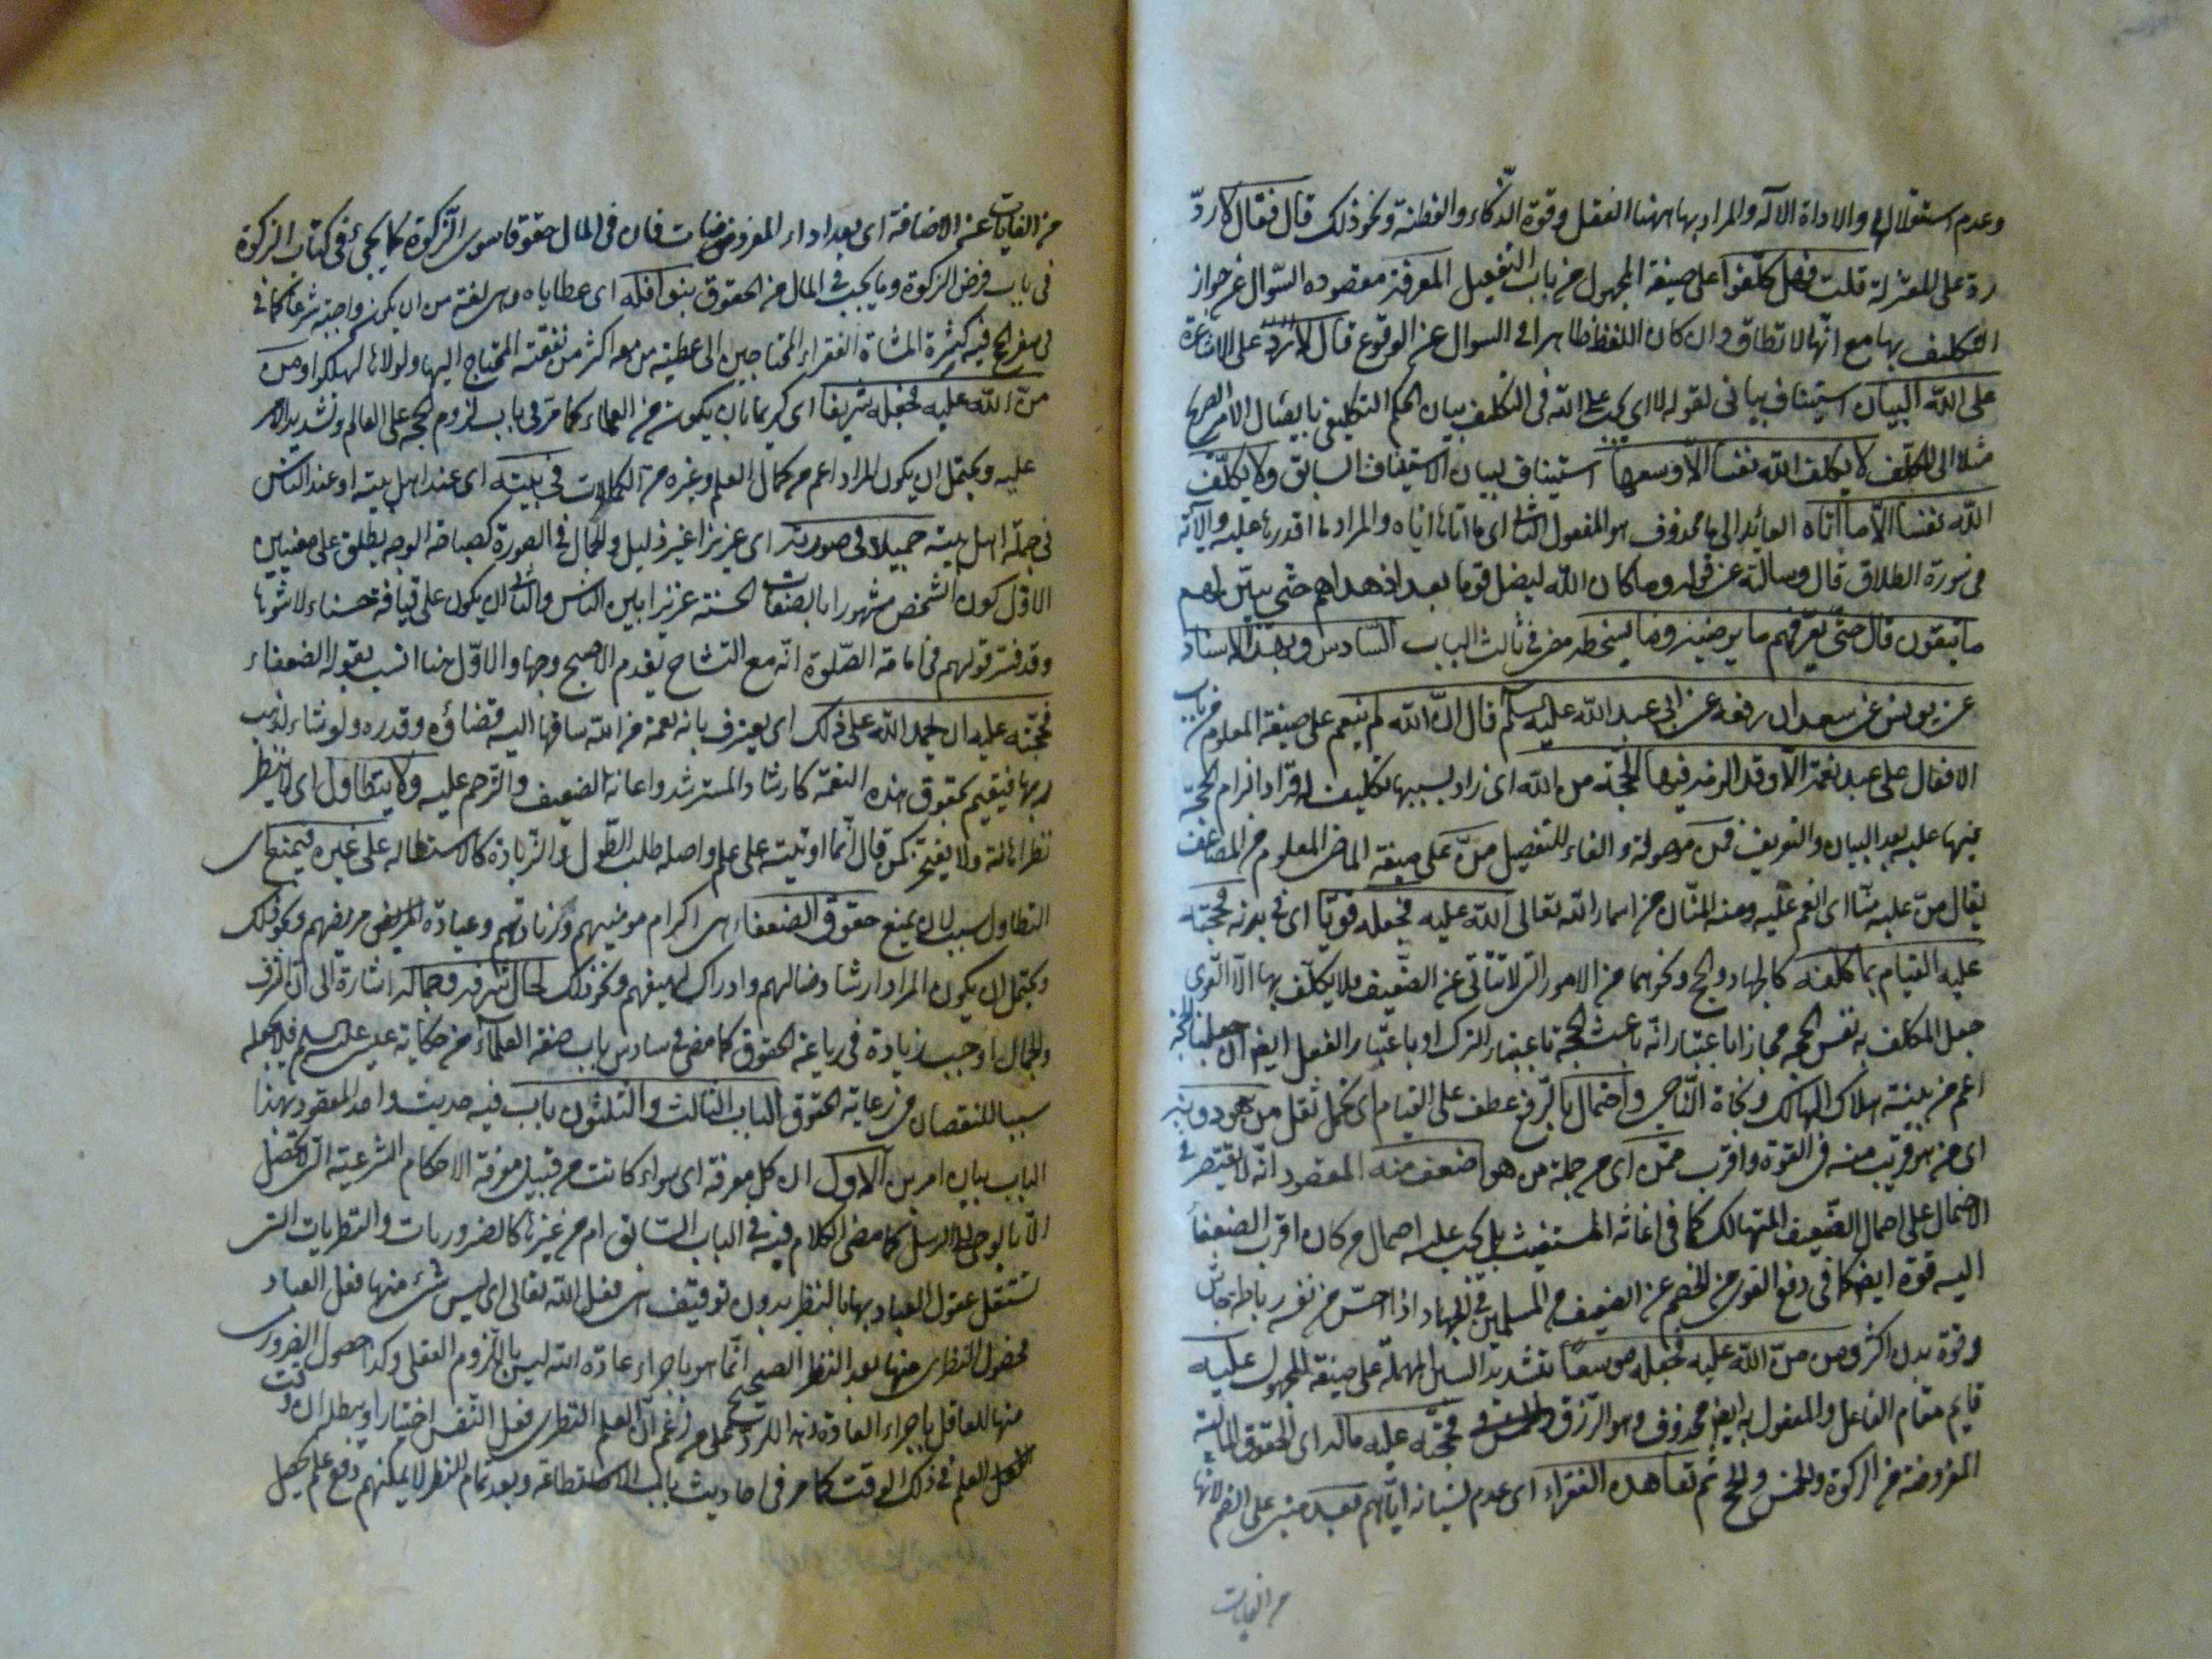 وعدم استقلال في والاداة الآلة والمراد بها ههنا العقل وقوة الذكاء والفطنة ونحو ذلك قال فقال لا ردّ
ردّ على المعتزلة قلت فهل كلّفوا على صيغة المجهول من باب التفعيل المعرفة مقصوده السؤال عن جواز
التكليف بها مع انّها لا تطاق وان كان اللفظ ظاهرا في السوال عن الوقوع قال لا ردّ على الاشاعرة
على الله البيان استيناف بياني لقوله لا اي يجب على الله في التكليف بيان الحكم التكليفي بايصال الامر الصريح
مثلا الى المكلّف لا يكلف الله نفسا الّا وسعها استيناف لبيان الاستيناف السابق ولا يكلّف
الله نفسا الّا ما آتاه العائد الى ما محذوف هو المفعول الثاني اي ما آتاها اياه والمراد ما اقدرها عليه والآية
في سورة الطلاق قال وسالته عن قوله وما كان الله ليضل قوما بعد اذ هداهم حتّى يبيّن لهم
ما يتقون قال حتّى يعرّفهم ما يرضيه وما يسخطه مضى في ثالث الباب السّادس وبهذا الاسناد
عن يونس عن سعدان رفعه عن ابي عبد الله عليه السلم قال انّ الله لم ينعم على صيغة المعلوم من باب
الافعال على عبد نعمة الّا وقد الزمه فيها الحجّة من الله اي زاد بسببها تكليف له قد اراد الزام الحجّة
فيها عليه بعد البيان والتعريف فمن موصولة والفاء للتفصيل منّ على صيغة الماضي المعلوم من المضاعف
يقال منّ عليه منّا اي انعم عليه ومنه المنّان من اسماء الله تعالى الله عليه فجعله قويّا اي في بدنه فحجّته
عليه القيام بما كلّفه كالجهاد والحج ونحوهما من الامور التي لا تتأتّى عن الضّعيف فلا يكلّف بها الّا القوي
جعل المكلف به نفس الحجّة مجازا باعتبار انّه باعث الحجّة باعتبار الترك او باعتبار الفعل ايضا
اعم من بيّنة هلاك الهالك ونجاة النّاجي واحتمال بالرّفع عطف على القيام اي تحمل ثقل من هو دونه
اي من هو قريب منه في القوة واقرب ممّن اي من جملة من هو اضعف منه المقصود انّه لا يقتصر في
الاحتمال على احتمال الضّعيف المتهالك كما في اغاثة المستغيث بل يجب عليه احتمال من كان اقرب الضعفاء
اليه قوة ايضا كما في دفع القوي من الخصم عن الضعيف من المسلمين في الجهاد اذا احسّ من نفسه رباطة جاش
وقوة بدن اكثر ومن منّ الله عليه فجعله موسّعا بتشديد السين المهملة على صيغة المجهول عليه
قايم مقام الفاعل والمفعول به ايضا محذوف وهو الرّزق فحجّته عليه ماله اي الحقوق الماليّة
المفروضة من الزكوة والخمس والحج ثم تعاهده الفقراء اي عدم نسيانه ايّاهم بعد
من الغايات
من الغايات عن الاضافة اي بعد اداء المفروضات فان في المال حقوقا سوى الزّكوة كما يجيء في كتاب الزكوة
في باب فرض الزكوة وما يجب في المال من الحقوق بنوافله اي عطاياه وهي لغة من ان يكون واجبة شرعا كما في
في سفر الحج فيه كثرة المشاة الفقراء المحتاجين الى عطيّة من معه اكثر من نفقته المحتاج اليها ولولاها لهلكوا ومن
منّ الله عليه فجعله شريفا اي كريما بان يكون من العلماء كما مرّ في باب لزوم الحجة على العالم وتشديد الامر
عليه ويحتمل ان يكون المراد اعم من كمال العلم وغيره من الكمالات في بيته اي عند اهل بيته او عند الناس
في جملة اهل بيته جميلا في صورته اي عزيزا غير ذليل والجمال في الصورة كصباحة الوجه يطلق على معنيين
الاوّل كون الشخص مشهورا بالصفات الحسنة عزيزا بين الناس والثاني ان يكون على قيافة حسناء لا شوها
وقد فسّر قولهم في امامة الصّلوة انّه مع التشاح يقدم الاصبح وجها والاوّل هنا انسب بقوله الضعفاء
فحجّته عليه ان يحمد الله على ذلك اي يعترف بانه نعمة من الله ساقها اليه قضاؤه وقدره ولو شاء لذهب
بها فيقيم بحقوق هذه النعمة كارشاد المسترشد واعانة الضعيف والترحم عليه ولا يتطاول اي لا ينظر
نظر اهانة ولا يفتخر كمن قال انّما اوتيته على علم واصله طلب الطّول والزيادة كالاستطالة على غيره فيمنع اي
التطاول سبب لان يمنع حقوق الضعفاء هي اكرام مومنيهم وزيارتهم وعيادة مريضهم ونحو ذلك
ويحتمل ان يكون المراد ارشاد ضالهم وادراك لهيفهم ونحو ذلك لحال شرفه وجماله اشارة الى انّ الشرف
والجمال اوجب زيادة في رعاية الحقوق كما مضى في سادس باب صفة العلماء من حكاية عيسى عليه السلم فلا يجعله
سببا للنقصان في رعاية الحقوق الباب الثالث والثلثون باب فيه حديث واحد المقصود بهذا
الباب بيان امرين الاول ان كل معرفة اي سواء كانت من قبيل معرفة الاحكام الشرعية التي لا تحصل
الّا بالوحي الى الرسل كما مضى الكلام فيه في الباب السّابق ام من غيرها كالضروريات والنظريات التي
تستقل عقول العباد بها بالنظر بدون توقيف هي فعل الله تعالى اي ليس شيء منها فعل العباد
فحصول النظري منها بعد النظر الصحيح انّما هو باجراء عادة الله ليس باللّزوم العقلي وكذا حصول الضروري
منها للعاقل باجراء العادة وهذا للرّدّ على من زعم انّ العلم النظري فعل النفس اختيارا ويبطله ان وقت
العلم في ذلك الوقت كما مر في احاديث باب الاستطاعة وبعد تمام النظر لا يمكنهم دفع علم يحصل